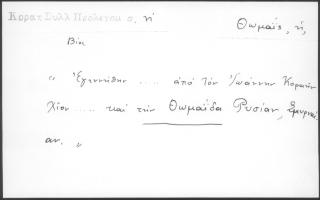 Κοραη Συλλ Πρόλεγομ σ. ή
Θωμαΐς, ή,
Βία
" Ἐγεννήθην ..... ἀπό τόν Ἰωάννην Κοραήν
Χῖον ..... καί τήν Θωμαΐδα Ρυσίαν, Σμυρναί
αν. "